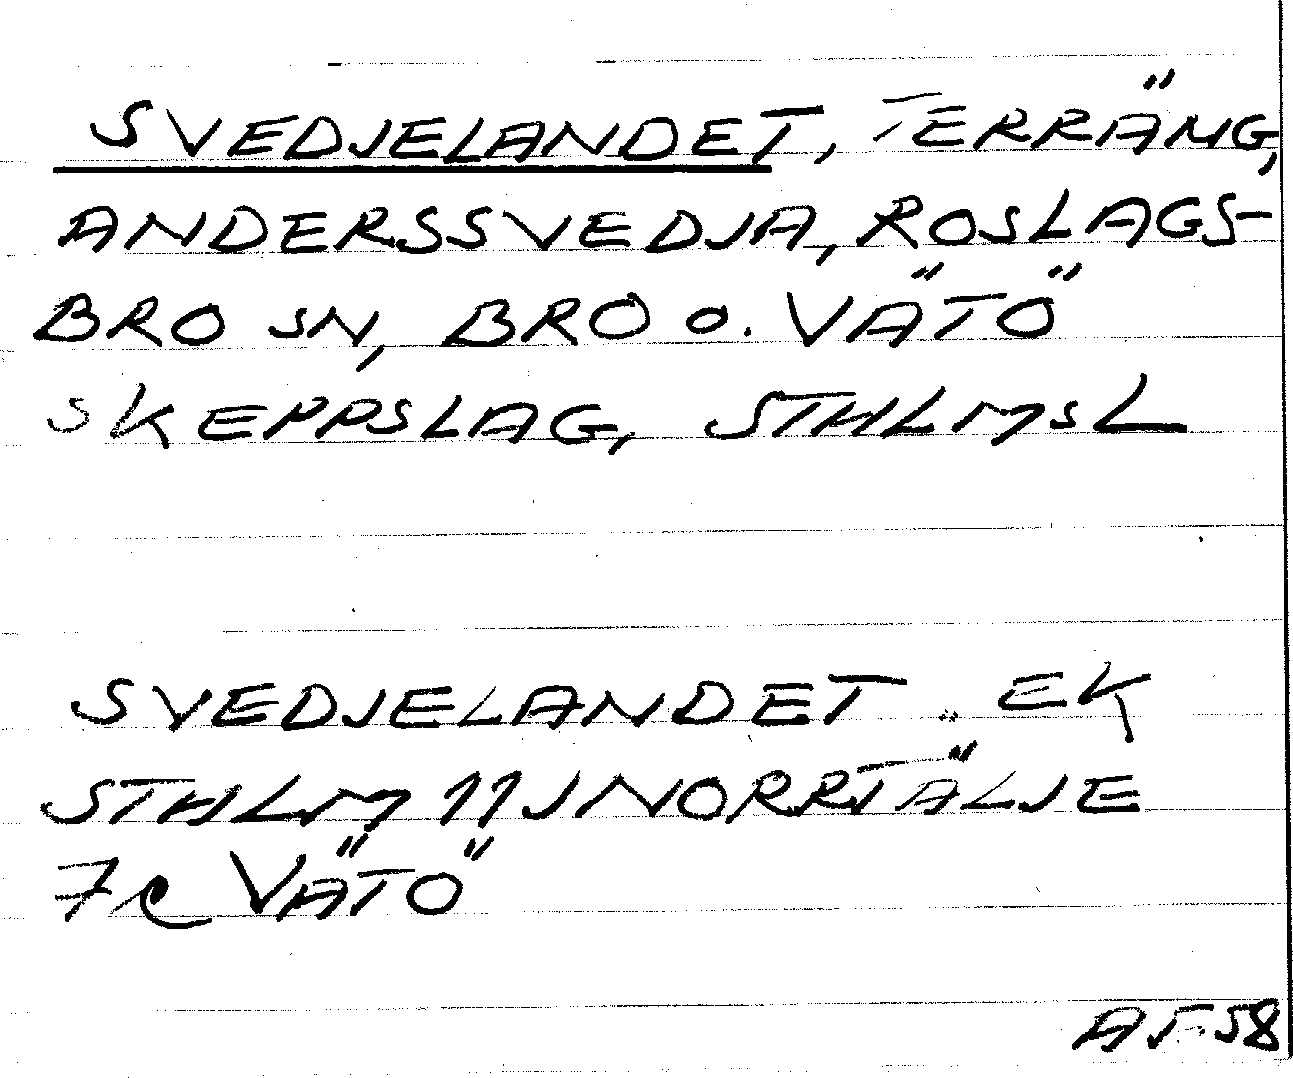 SVEDJELANDET, TERRÄNG,
ANDERSSVEDJA, ROSLAGS-
BRO SN, BRO o. VÄTÖ
SKEPPSLAG, STHLMSL
SVEDJELANDET EK
STHLM 11J NORRTÄLJE
7c VÄTÖ
AF58